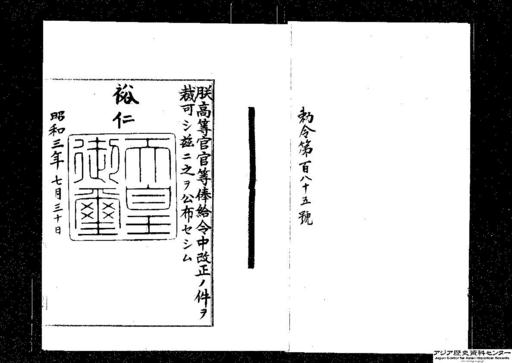 勅令第百八十五號
朕高等官官等俸給令中改正ノ件ヲ
裁可シ茲ニ之ヲ公布セシム
裕仁
天皇御璽
昭和三年七月三十日
アジア歴史資料センター
Japan Center for Asian Historical Records